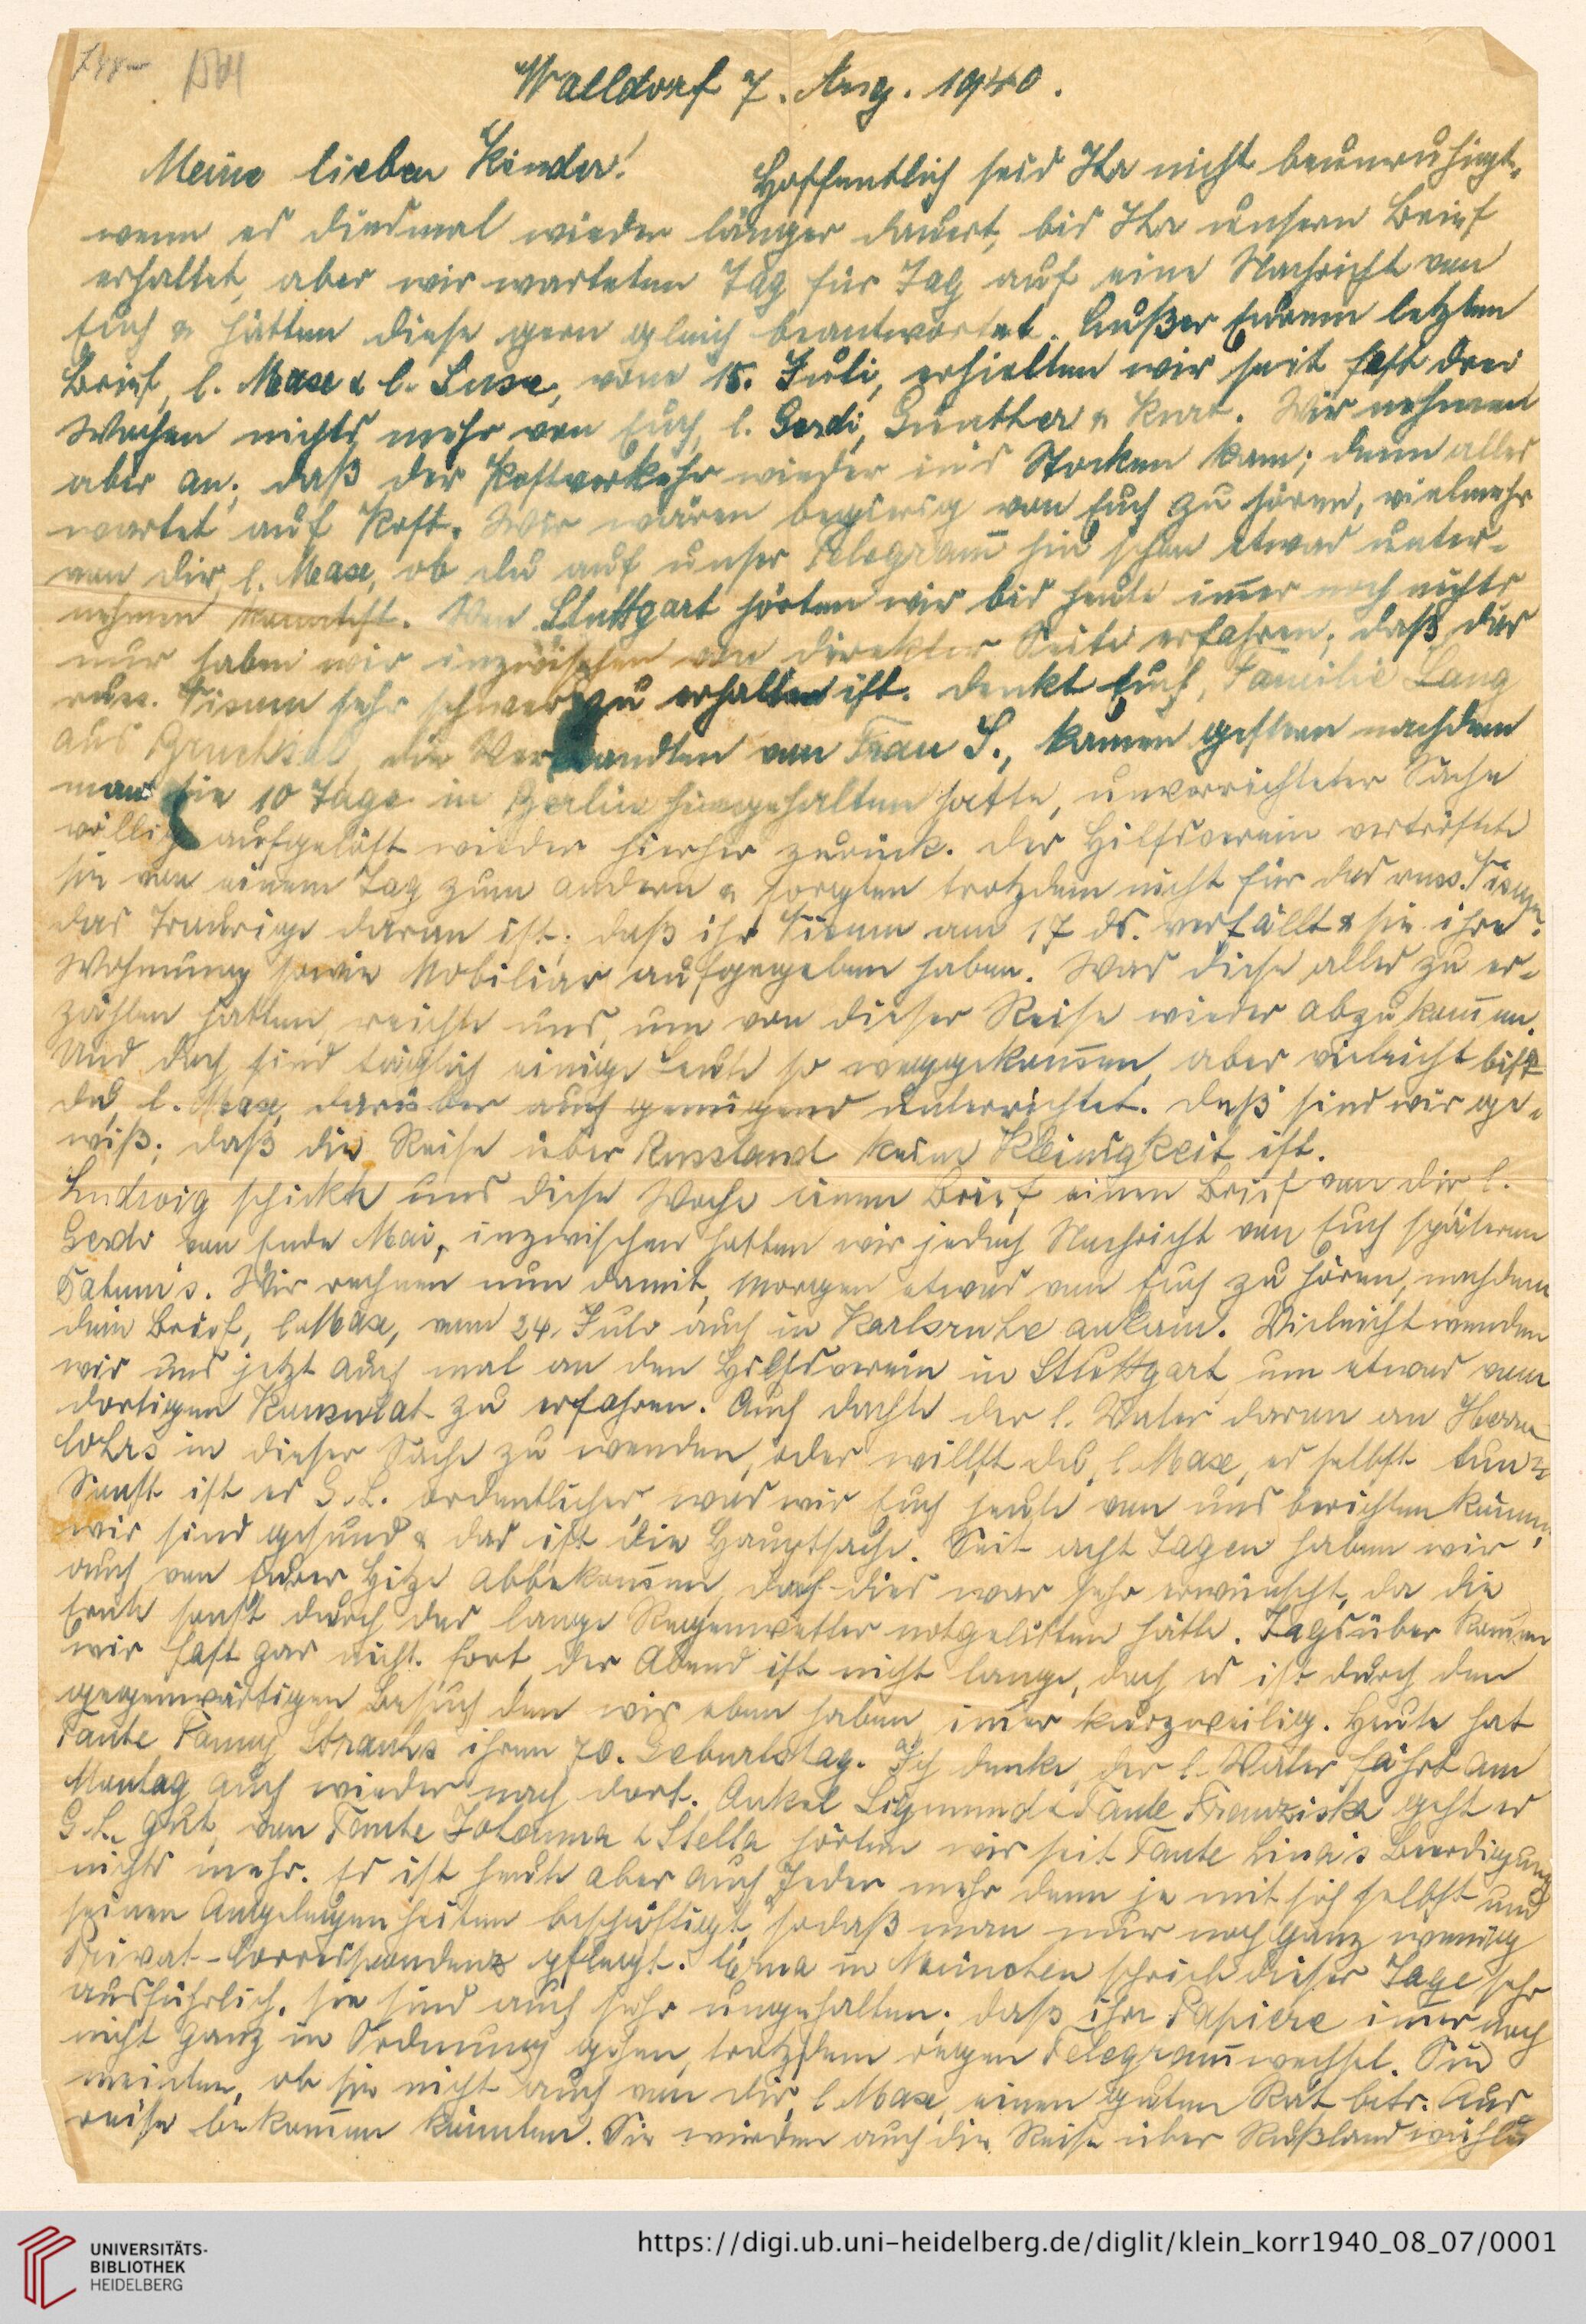 Walldorf 7. Aug. 1940.
Meine lieben Kinder! Hoffentlich seid Ihr nicht beunruhigt,
wenn es diesmal wieder länger dauert, bis Ihr unsern Brief
erhaltet, aber wir warteten Tag für Tag auf eine Nachricht von
Euch & hätten diese gern gleich beantwortet. Außer Eurem letzten
Brief, l. Max & l. Suse, vom 15. Juli, erhielten wir seit fast drei
Wochen nichts mehr von Euch, l. Gerdi, Günther & Kurt. Wir nehmen
aber an, daß der Postverkehr wieder in's Stocken kam; denn alles
wartet auf Post. Wir wären begierig von Euch zu hören, vielmehr
von dir, l. Max, ob du auf unser Telegramm hin schon etwas unter-
nehmen konntest. Von Stuttgart hörten wir bis heute immer noch nichts
nur haben wir inzwischen von direkter Seite erfahren, daß das
russ. Visum sehr schwer zu erhalten ist. Denkt Euch, Familie Lang
aus Bruchsal, die Verwandten von Frau S., kamen gestern nachdem
man sie 10 Tage in Berlin hingehalten hatte, unverrichteter Sache
völlig aufgelöst wieder hierher zurück. Der Hilfsverein vertröstete
sie von einem Tag zum andern & sorgten trotzdem nicht für das russ. Visum.
Das Traurige daran ist, daß ihr Visum am 17 ds. verfällt & sie ihre
Wohnung sowie Mobiliar aufgegeben haben. Was diese alles zu er-
zählen hatten, reichte uns, um von dieser Reise wieder abzukommen.
Und doch sind täglich einige Leute so weggekommen, aber vieleicht bist
du, l. Max, darüber auch genügend unterrichtet. Deß sind wir ge-
wiß, daß die Reise über Russland keine Kleinigkeit ist.
Ludwig schickte uns diese Woche einen Brief einen Brief von dir, l.
Gerdi von Ende Mai, inzwischen hatten wir jedoch Nachricht von Euch späteren
Datum's. Wir rechnen nun damit, morgen etwas von Euch zu hören, nachdem
dein Brief, l. Max, vom 24. Juli auch in Karlsruhe ankam. Vieleicht wenden
wir uns jetzt auch mal an den Hilfsverein in Stuttgart, um etwas vom
dortigen Konsulat zu erfahren. Auch dachte der l. Vater daran an Herrn
Cohrs in dieser Sache zu wenden, oder willst du, l. Max, es selbst tun?
Sonst ist es G. L. ordentliches, was wir Euch heute von uns berichten können,
wir sind gesund & das ist die Hauptsache. Seit acht Tagen haben wir
auch von Eurer Hitze abbekommen, doch dies war sehr erwünscht, da die
Ernte sonst durch das lange Regenwetter notgelitten hätte. Tagsüber kommen
wir fast gar nicht fort, der Abend ist nicht lange, doch es ist durch den
gegenwärtigen Besuch den wir eben haben, immer kurzweilig. Heute hat
Tante Fanny Strauss ihren 70. Geburtstag. Ich denke, der l. Vater fährt am
Montag auch wieder nach dort. Onkel Sigmund & Tante Franziska geht es
G. L. gut, von Tante Johanna & Stella hörten wir seit Tante Lina's Beerdigung
nichts mehr. Es ist heute aber auch Jeder mehr denn je mit sich selbst und
seinen Angelegenheiten beschäftigt, sodaß man nur noch ganz wenig
Privat-Correspondenz pflegt. Erna in München schrieb dieser Tage sehr
ausführlich, sie sind auch sehr ungehalten, daß ihre Papiere immer noch
nicht ganz in Ordnung gehen, trotz dem regen Telegrammwechsel. Sie
meinten, ob sie nicht auch von dir, l. Max, einen guten Rat betr. Aus
reise bekommen könnten. Sie würden auch die Reise über Rußland wählen
UNIVERSITÄTS-
BIBLIOTHEK
HEIDELBERG
https://digi.ub.uni-heidelberg.de/diglit/klein_korr1940_08_07/0001